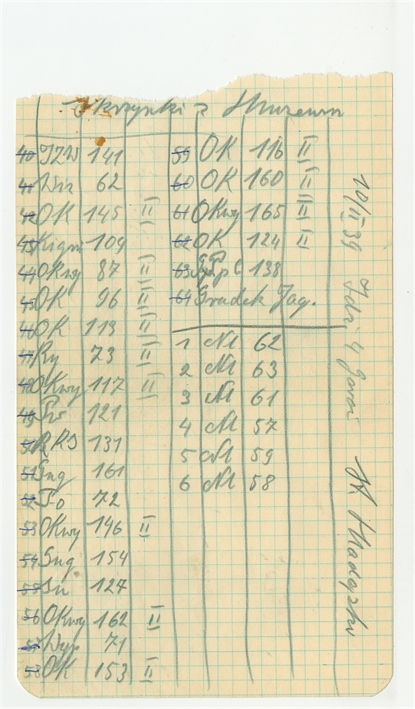 Skrzynki z Muzeum
40 IZW 141
41 Wiz 62
42 OK 145 II
43 109
44 OKwy 87 II
45 OK 96 II
46 OK 113 II
47 Ry 73 II
48 OKwy 117 II
49 121
50 RRS 131
51 Sng 161
52 To 72
53 OKwy 146 II
54 Sng 154
55 127
56 OKwy 162 II
57 Wyp 71
58 OK 153 II
59 OK 116 II
60 OK 160 II
61 OKwy 165 II
62 OK 124 II
63 138
64 Gradek Jag.
1 Nl 62
2 Nl 63
3 Nl 61
4 Nl 57
5 Nl 59
6 Nl 58
10/II 39